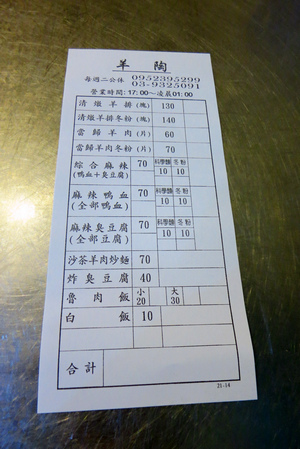 羊陶
每週二公休 0952395299
03-9325091
營業時間:17:00～凌晨01:00
清燉羊排(塊) 130
清燉羊排冬粉(塊) 140
當歸羊肉(片) 60
當歸羊肉冬粉(片) 70
綜合麻辣 70 科學麵 冬粉
(鴨血+臭豆腐) 10 10
麻辣鴨血 70 科學麵 冬粉
(全部鴨血) 10 10
麻辣臭豆腐 70 科學麵 冬粉
(全部豆腐) 10 10
沙茶羊肉炒麵 70
炸臭豆腐 40
魯肉飯 小20 大30
白飯 10
合計
21-14